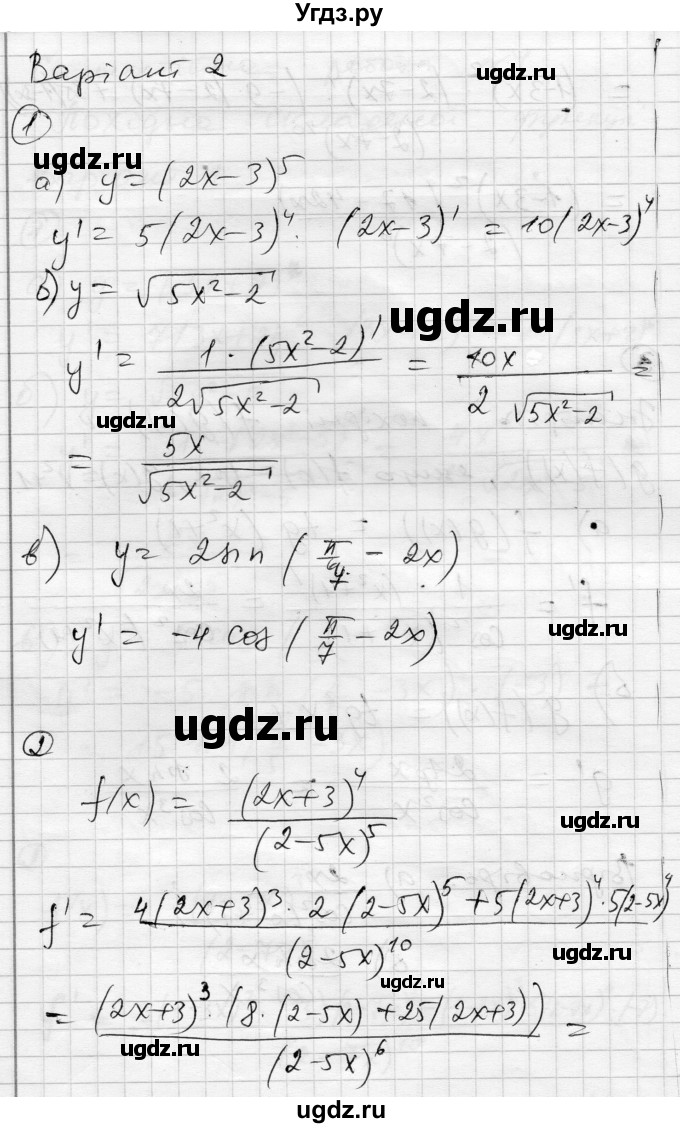 Угдз.ру
Варіант 2
1
ugdz.ru
а) y = (2x-3)^5
y' = 5(2x-3)^4 · (2x-3)' = 10(2x-3)^4
б) y = √(5x²-2)
ugdz.ru
y' = 1·(5x²-2)' / 2√(5x²-2) = 10x / 2√(5x²-2) =
ugdz.ru
= 5x / √(5x²-2)
в) y = 2sin(π/7 - 2x)
ugdz.ru
y' = -4 cos(π/7 - 2x)
ugdz.ru
2
f(x) = (2x+3)^4 / (2-5x)^5
ugdz.ru
f' = 4(2x+3)^3 · 2(2-5x)^5 + 5(2x+3)^4 · 5(2-5x)^4 / (2-5x)^10
ugdz.ru
ugdz.ru
= (2x+3)^3 · (8·(2-5x) + 25(2x+3)) / (2-5x)^6 =
ugdz.ru
ugdz.ru
ugdz.ru